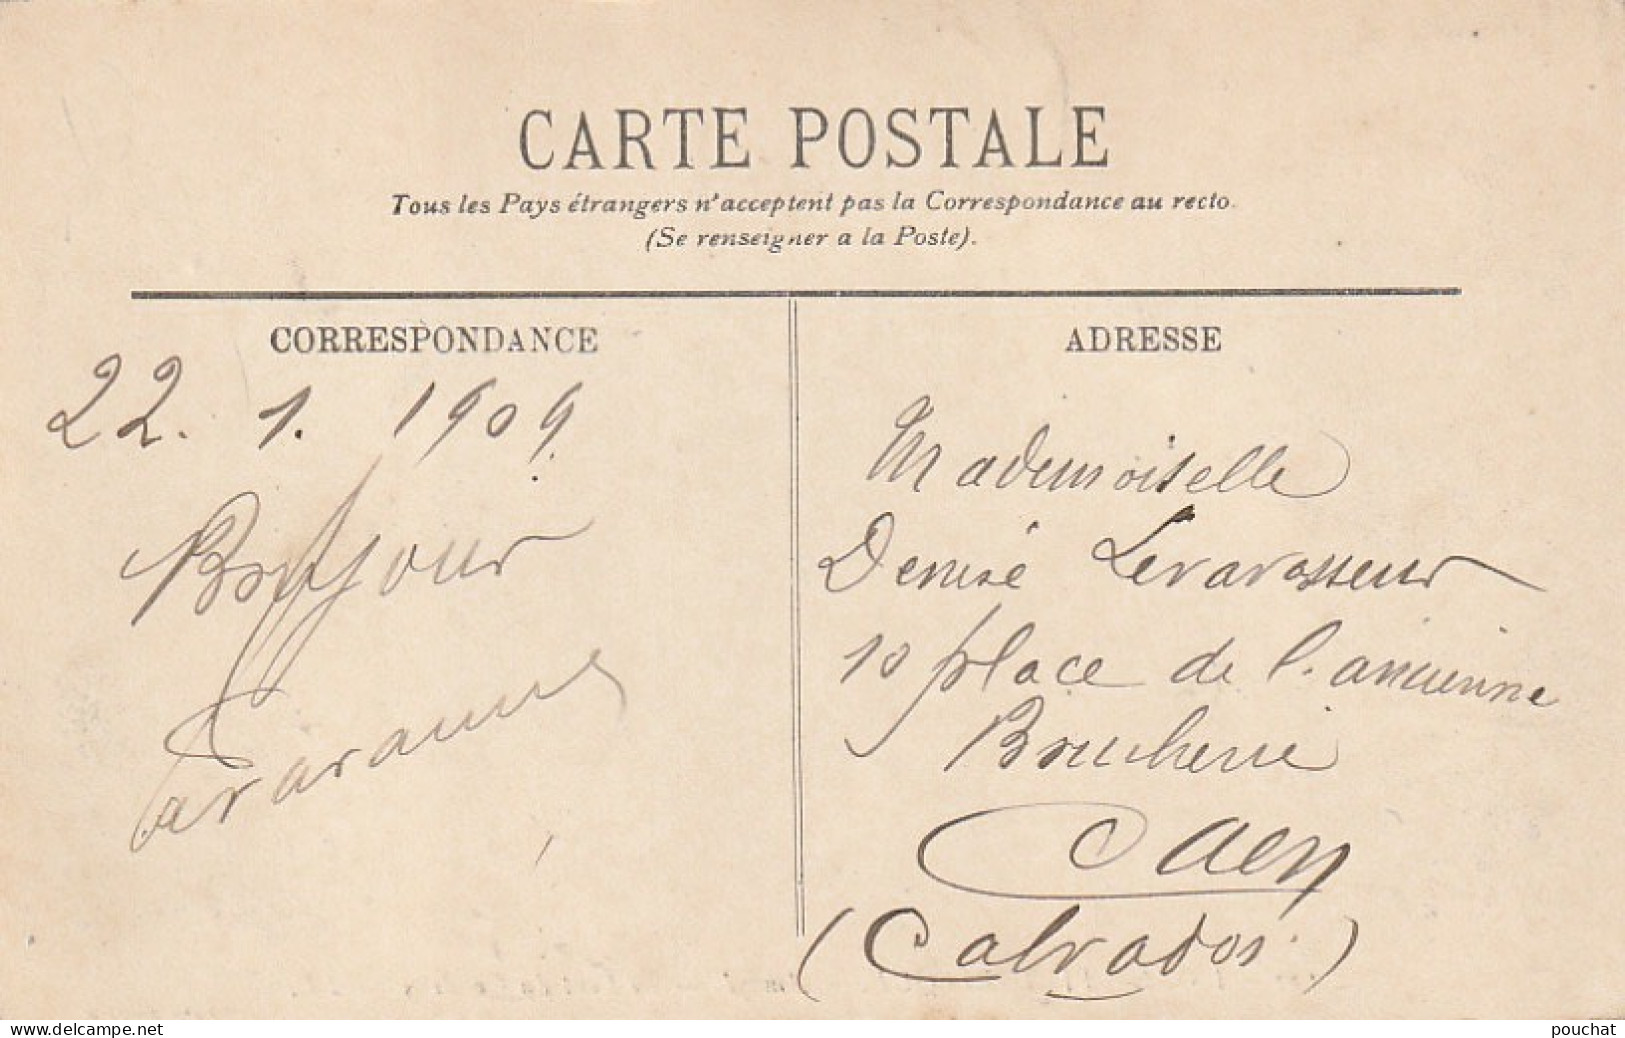 CARTE POSTALE
Tous les Pays étrangers n'acceptent pas la Correspondance au recto.
(Se renseigner a la Poste).
CORRESPONDANCE
22. 1. 1909.
Bonjour
ADRESSE
Mademoiselle
Denise Levavasseur
10 place de l'ancienne
Boucherie
Caen
(Calvados.)
www.delcampe.net
pouchat